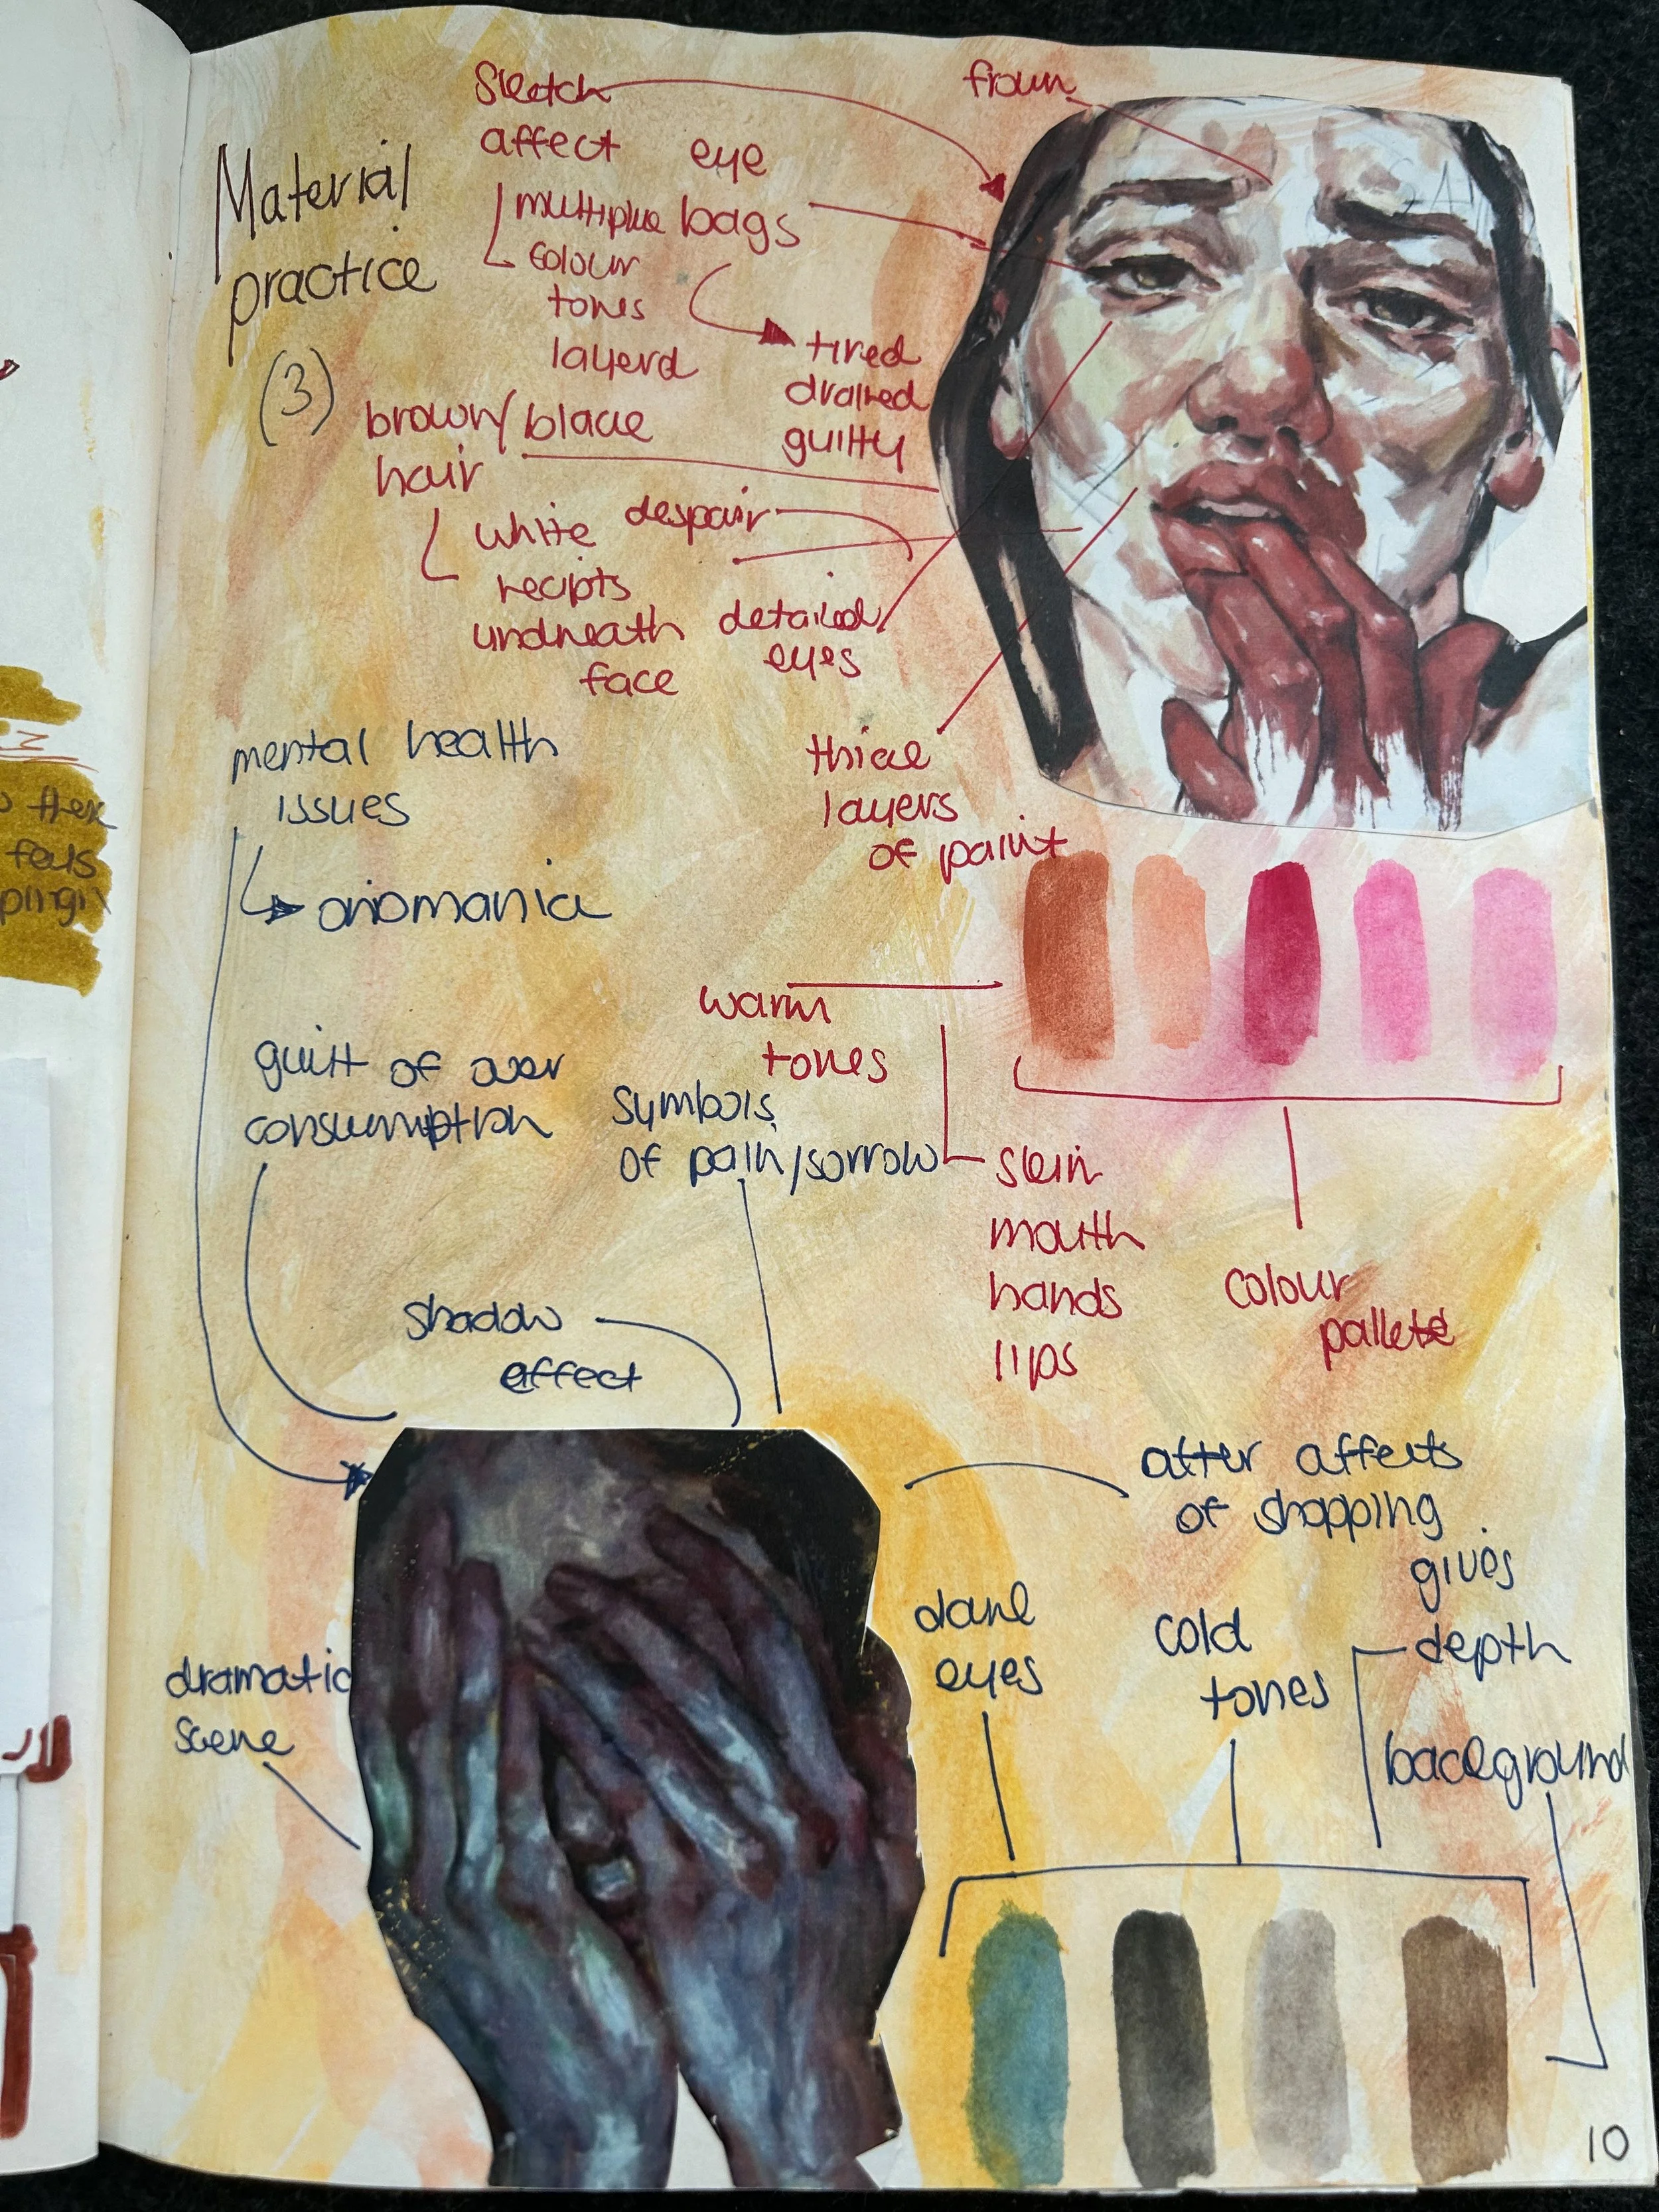 Material
practice
(3)
Sketch
affect
multiple
colour
tones
layerd
eye
bags
tired
drained
guilty
frown
brown/black
hair
white
recipts
undneath
face
despair
detailed
eyes
thick
layers
of paint
mental health
issues
oniomania
warm
tones
skin
mouth
hands
lips
colour
pallete
guilt of over
consumption
symbols
of pain/sorrow
shadow
effect
dramatic
scene
after affects
of shopping
dark
eyes
cold
tones
gives
depth
background
10
feels